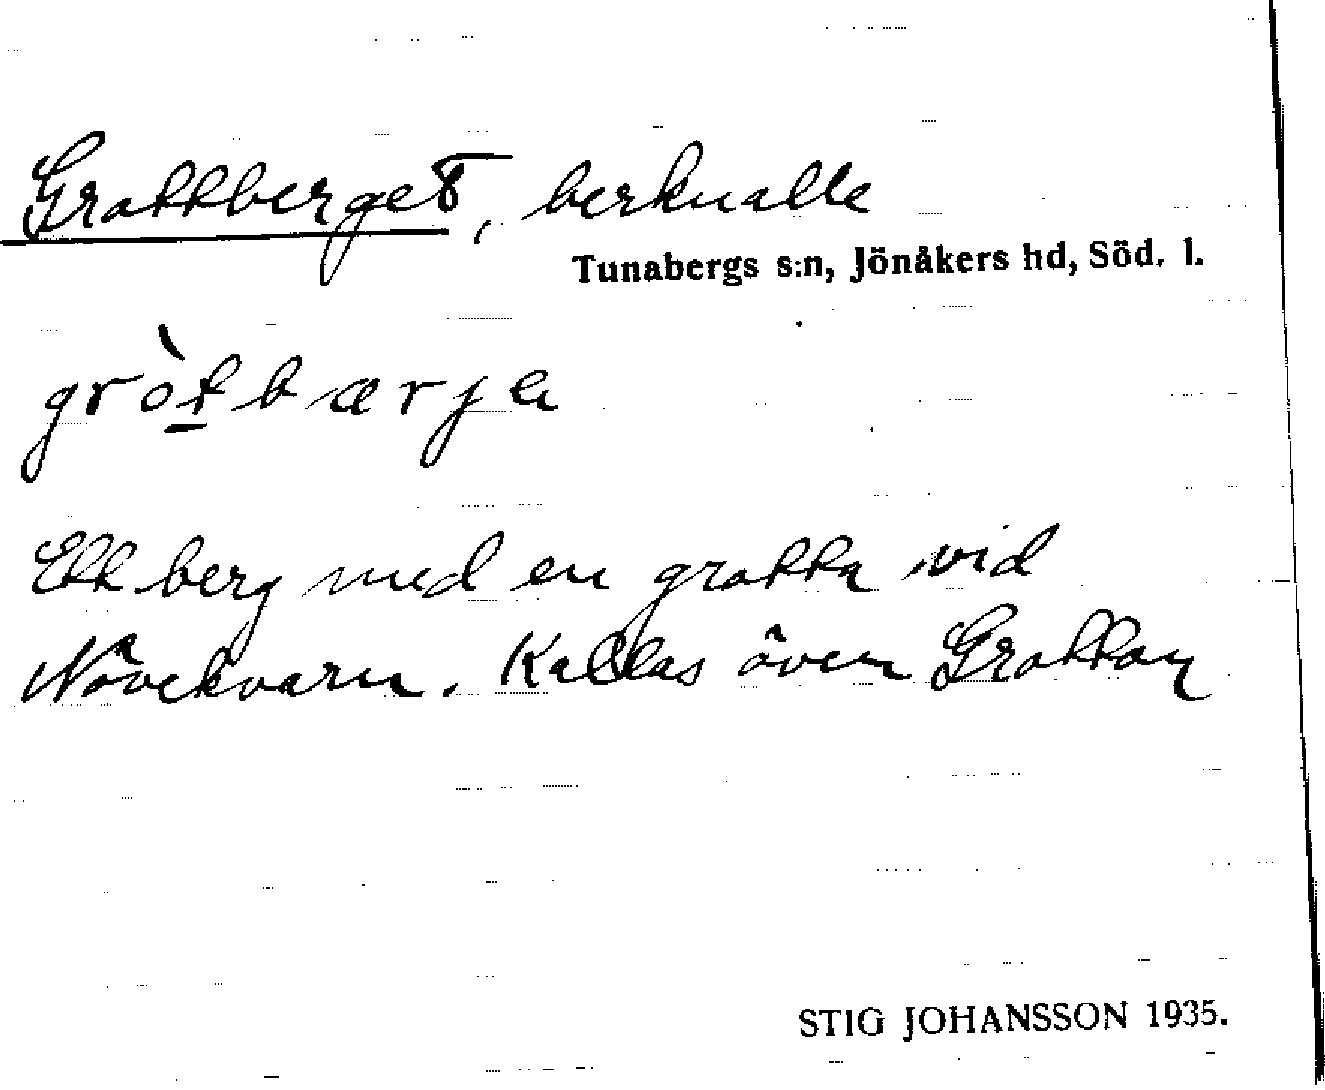 Grottberget, berknalle
Tunabergs s:n, Jönåkers hd, Söd. l.
gròt̲bærja
Ett berg med en grotta vid
Nävekvarn. Kallas även Grottan
STIG JOHANSSON 1935.